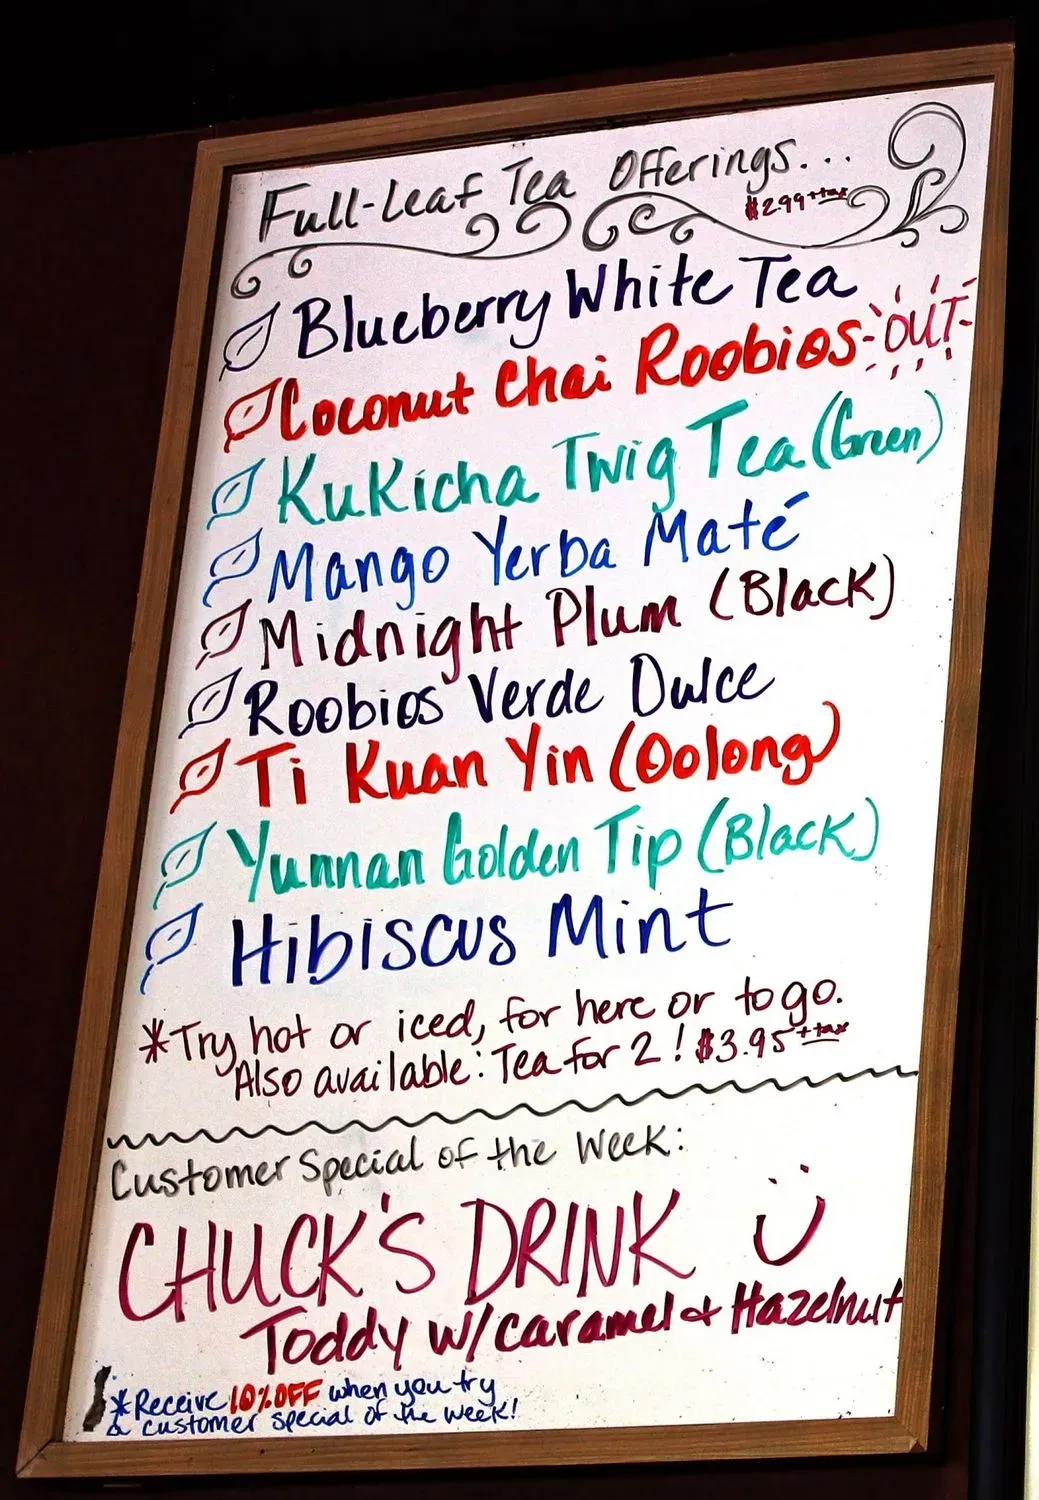 Full-Leaf Tea Offerings...
$2.99 + tax
Blueberry White Tea
Coconut Chai Roobios OUT
Kukicha Twig Tea (Green)
Mango Yerba Maté
Midnight Plum (Black)
Roobios Verde Dulce
Ti Kuan Yin (Oolong)
Yunnan Golden Tip (Black)
Hibiscus Mint
*Try hot or iced, for here or to go.
Also available: Tea for 2! $3.95 + tax
Customer Special of the Week:
CHUCK'S DRINK
Toddy w/ caramel & Hazelnut
*Receive 10% OFF when you try
a customer special of the week!